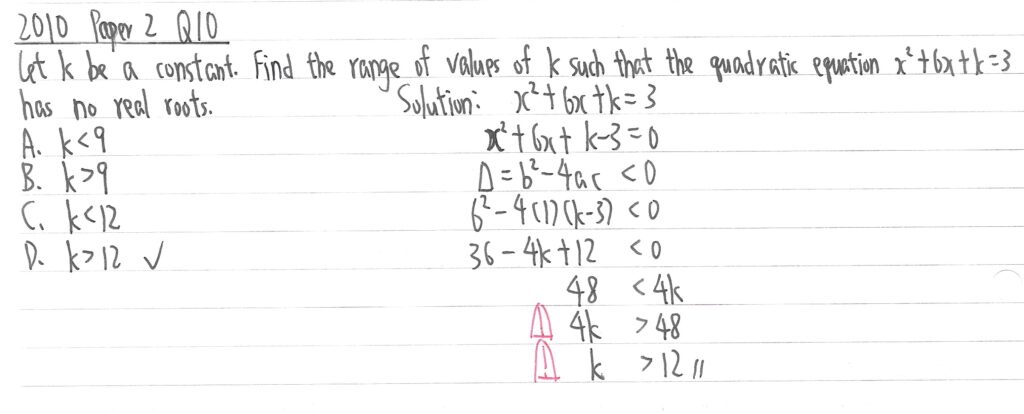 2010 Paper 2 Q10
Let k be a constant. Find the range of values of k such that the quadratic equation x²+6x+k=3
has no real roots.
Solution: x²+6x+k=3
A. k<9
x²+6x+k-3=0
B. k>9
Δ=b²-4ac <0
C. k<12
6²-4(1)(k-3) <0
D. k>12 ✓
36-4k+12 <0
48 <4k
4k >48
k >12 //